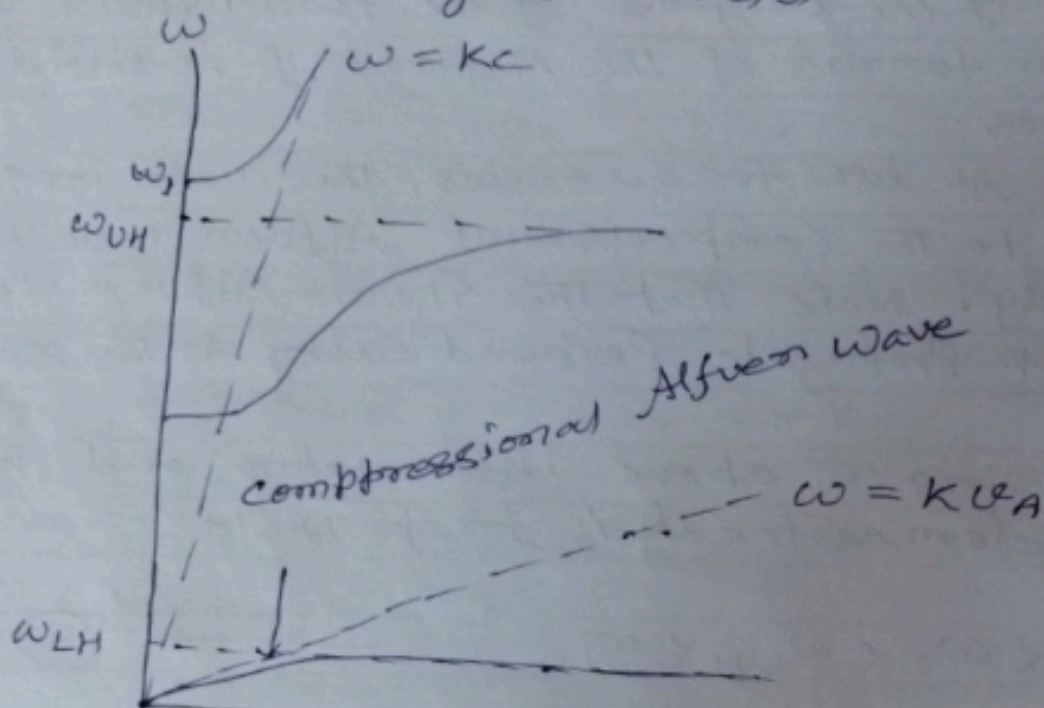 ω
ω = Kc
ω,
ωUH
comppressional Alfven wave
ω = KvA
ωLH